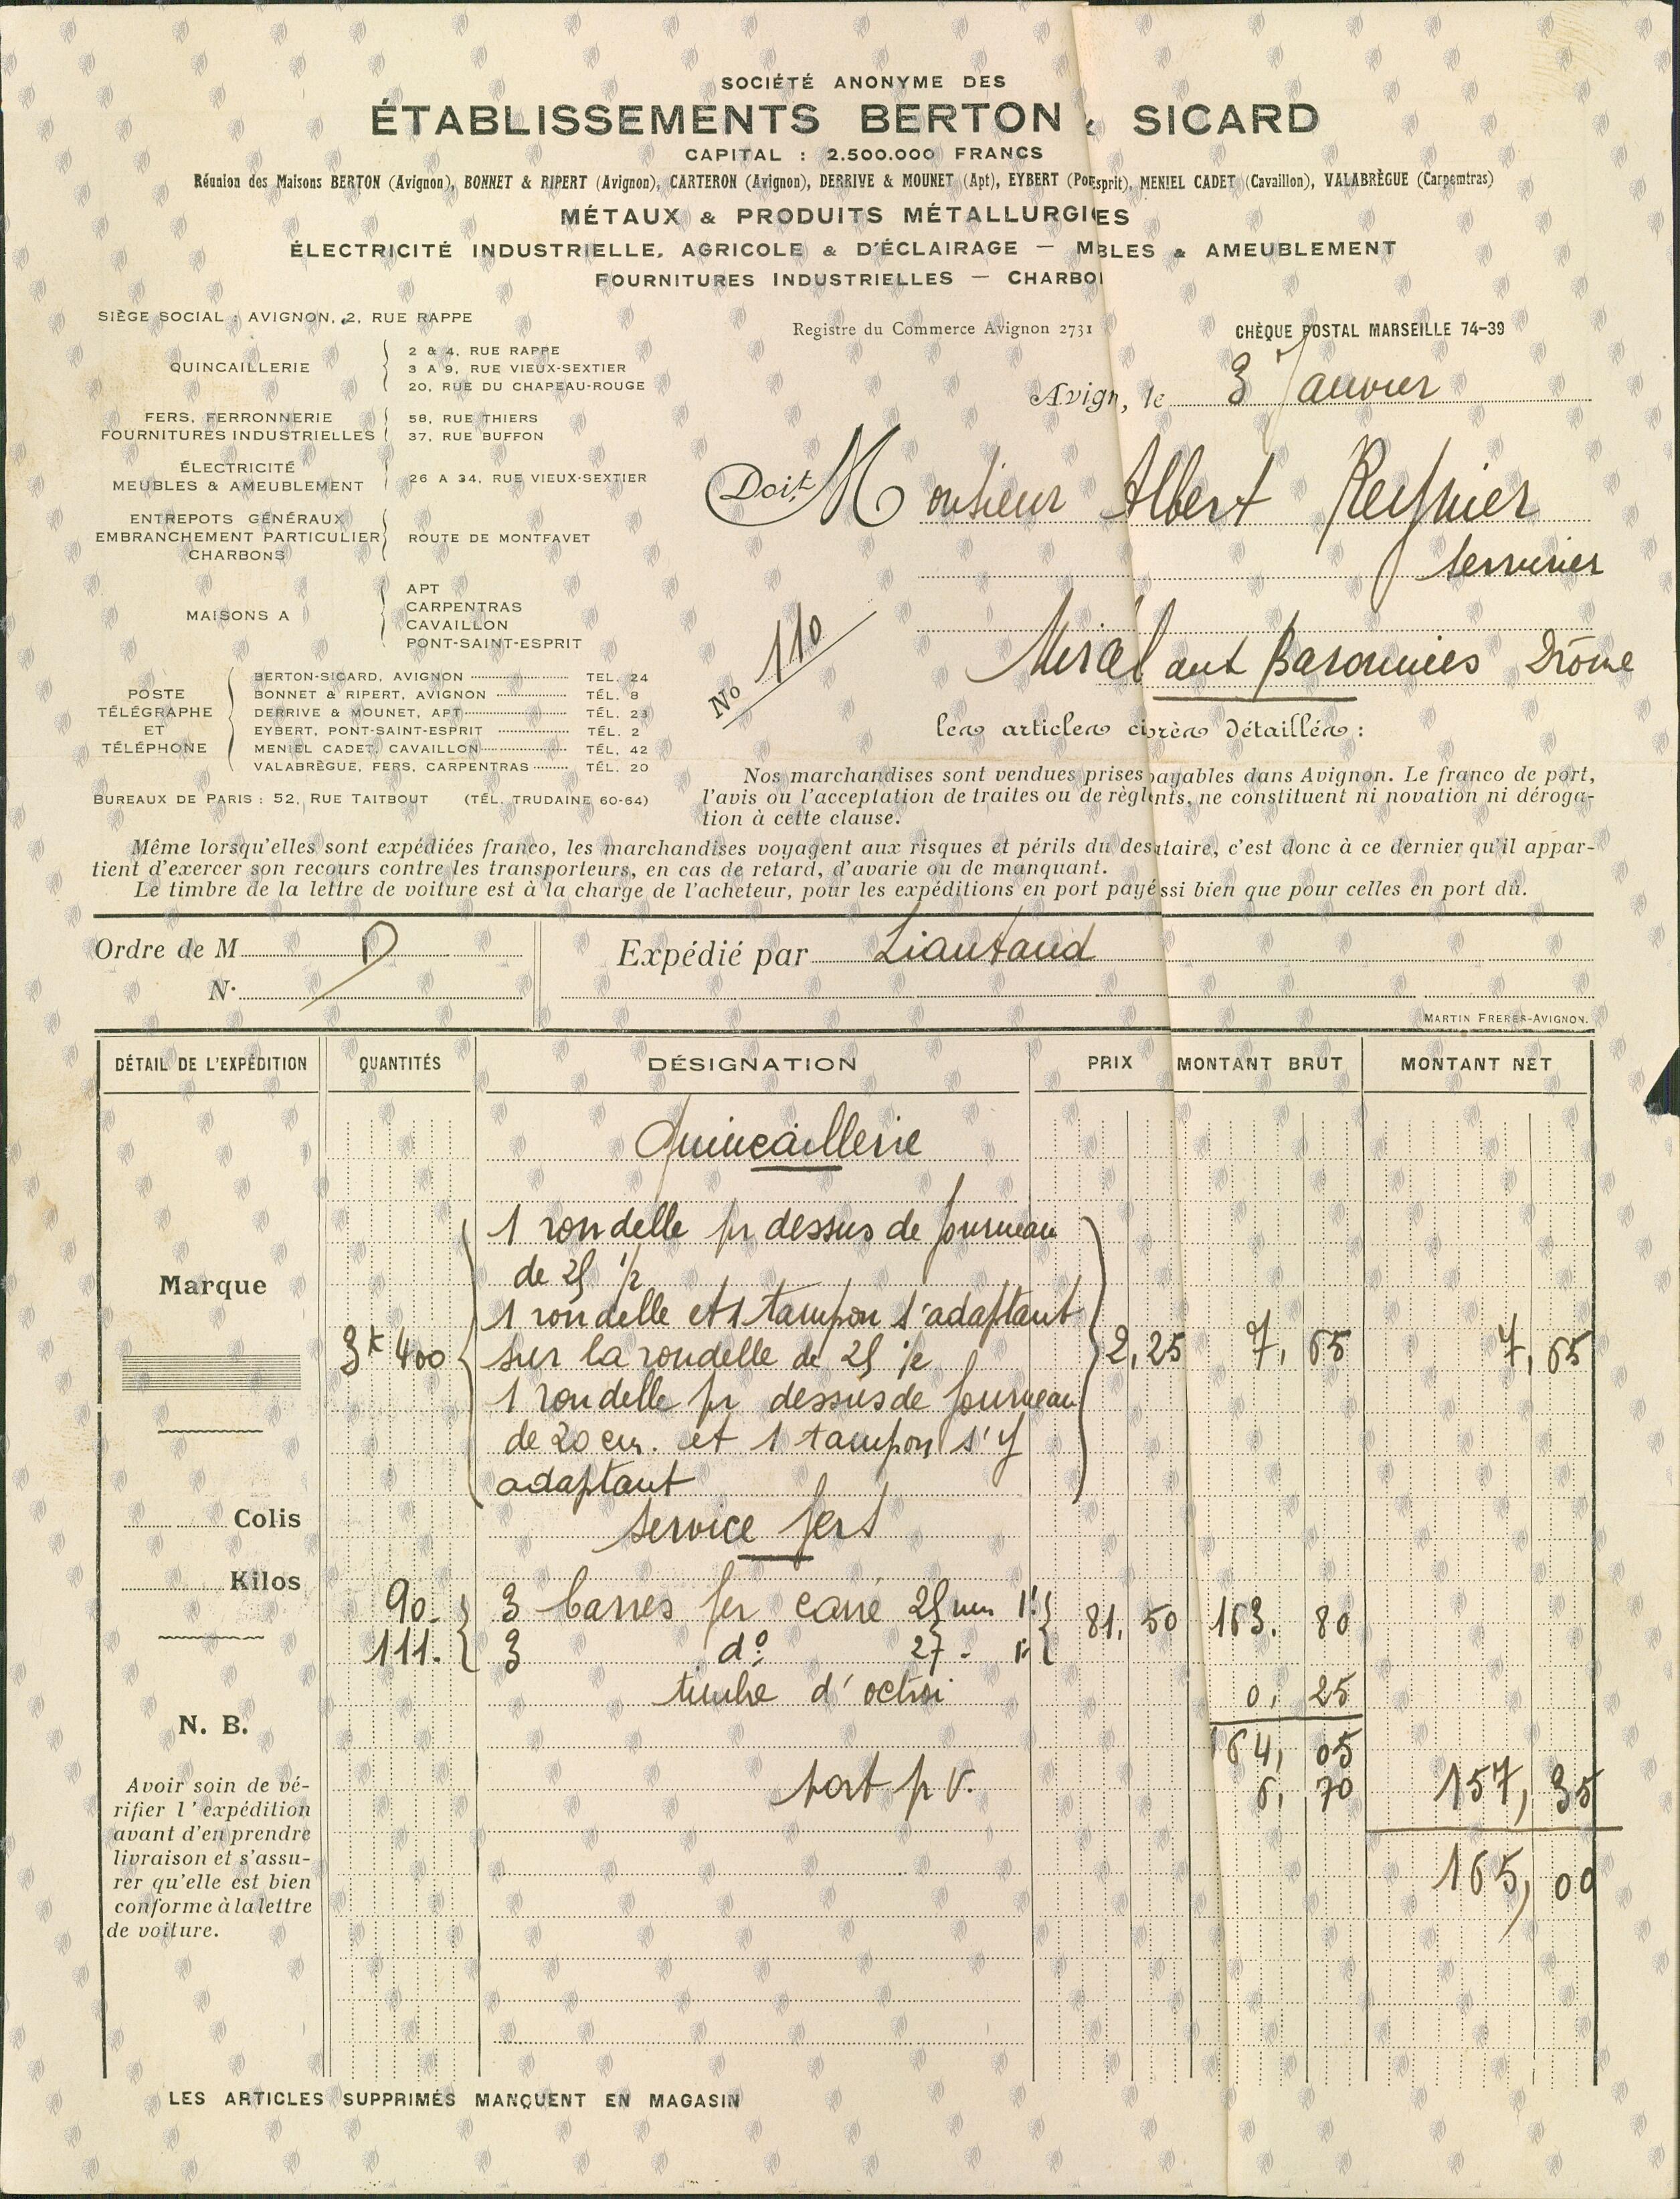 SOCIÉTÉ ANONYME DES
ÉTABLISSEMENTS BERTON & SICARD
CAPITAL : 2.500.000 FRANCS
Réunion des Maisons BERTON (Avignon), BONNET & RIPERT (Avignon), CARTERON (Avignon), DERRIVE & MOUNET (Apt), EYBERT (Po Esprit), MENIEL CADET (Cavaillon), VALABRÈGUE (Carpentras)
MÉTAUX & PRODUITS MÉTALLURGI ES
ÉLECTRICITÉ INDUSTRIELLE, AGRICOLE & D'ÉCLAIRAGE — M BLES & AMEUBLEMENT
FOURNITURES INDUSTRIELLES — CHARBO
SIÈGE SOCIAL : AVIGNON, 2, RUE RAPPE
Registre du Commerce Avignon 2731
CHÈQUE POSTAL MARSEILLE 74-39
QUINCAILLERIE
2 & 4, RUE RAPPE
3 A 9, RUE VIEUX-SEXTIER
20, RUE DU CHAPEAU-ROUGE
Avign, le 3 Janvier
FERS, FERRONNERIE
FOURNITURES INDUSTRIELLES
58, RUE THIERS
37, RUE BUFFON
ÉLECTRICITÉ
MEUBLES & AMEUBLEMENT
26 A 34, RUE VIEUX-SEXTIER
Doit Monsieur Albert Reynier
serrurier
ENTREPOTS GÉNÉRAUX
EMBRANCHEMENT PARTICULIER
CHARBONS
ROUTE DE MONTFAVET
MAISONS A
APT
CARPENTRAS
CAVAILLON
PONT-SAINT-ESPRIT
No 110
aux Baronnies Drôme
POSTE
TÉLÉGRAPHE
ET
TÉLÉPHONE
BERTON-SICARD, AVIGNON TEL. 24
BONNET & RIPERT, AVIGNON TÉL. 8
DERRIVE & MOUNET, APT TÉL. 23
EYBERT, PONT-SAINT-ESPRIT TÉL. 2
MENIEL CADET, CAVAILLON TÉL. 42
VALABRÈGUE, FERS, CARPENTRAS TÉL. 20
les articles ci rès détaillés :
BUREAUX DE PARIS : 52, RUE TAITBOUT (TÉL. TRUDAINE 60-64)
Nos marchandises sont vendues prises payables dans Avignon. Le franco de port,
l'avis ou l'acceptation de traites ou de règl nts, ne constituent ni novation ni déroga-
tion à cette clause.
Même lorsqu'elles sont expédiées franco, les marchandises voyagent aux risques et périls du des ataire, c'est donc à ce dernier qu'il appar-
tient d'exercer son recours contre les transporteurs, en cas de retard, d'avarie ou de manquant.
Le timbre de la lettre de voiture est à la charge de l'acheteur, pour les expéditions en port payé ssi bien que pour celles en port dû.
Ordre de M D
N·
Expédié par Liautaud
MARTIN FRERES-AVIGNON.
DÉTAIL DE L'EXPÉDITION QUANTITÉS DÉSIGNATION PRIX MONTANT BRUT MONTANT NET
Quincaillerie
1 rondelle pr dessus de fourneau
de 25 1/2
1 rondelle et 1 tampon s'adaptant
3k 400 sur la rondelle de 25 1/2 2,25 7,65 7,65
1 rondelle pr dessus de fourneau
de 20 cm. et 1 tampon s'y
adaptant
Service fers
90. 3 barres fer carré 25 mm 81,50 163.80
111. 3 do 27
timbre d'octroi 0,25
164,05
port p v. 6,70 157,35
165,00
Marque
Colis
Kilos
N. B.
Avoir soin de vé-
rifier l'expédition
avant d'en prendre
livraison et s'assu-
rer qu'elle est bien
conforme à la lettre
de voiture.
LES ARTICLES SUPPRIMÉS MANQUENT EN MAGASIN